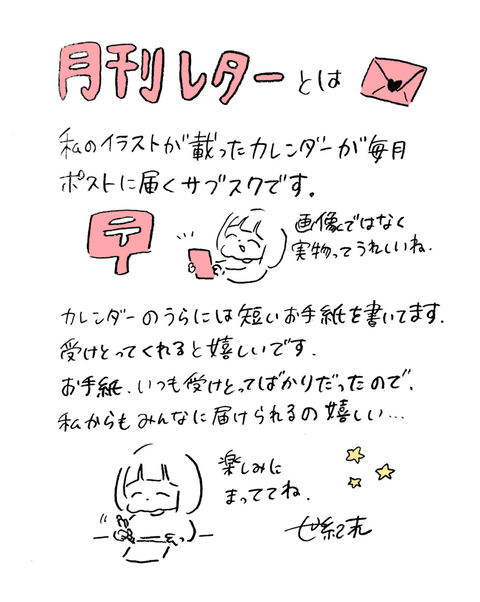 月刊レターとは
私のイラストが載ったカレンダーが毎月
ポストに届くサブスクです。
〒
画像ではなく
実物ってうれしいね.
カレンダーのうらには短いお手紙を書いてます.
受けとってくれると嬉しいです.
お手紙、いつも受けとってばかりだったので、
私からもみんなに届けられるの嬉しい…
楽しみに
まっててね.
世紀末